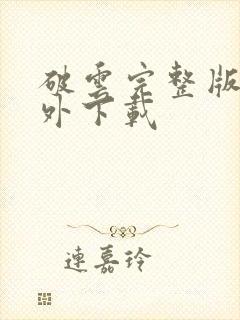 破雲完整版
外下載
連嘉玲